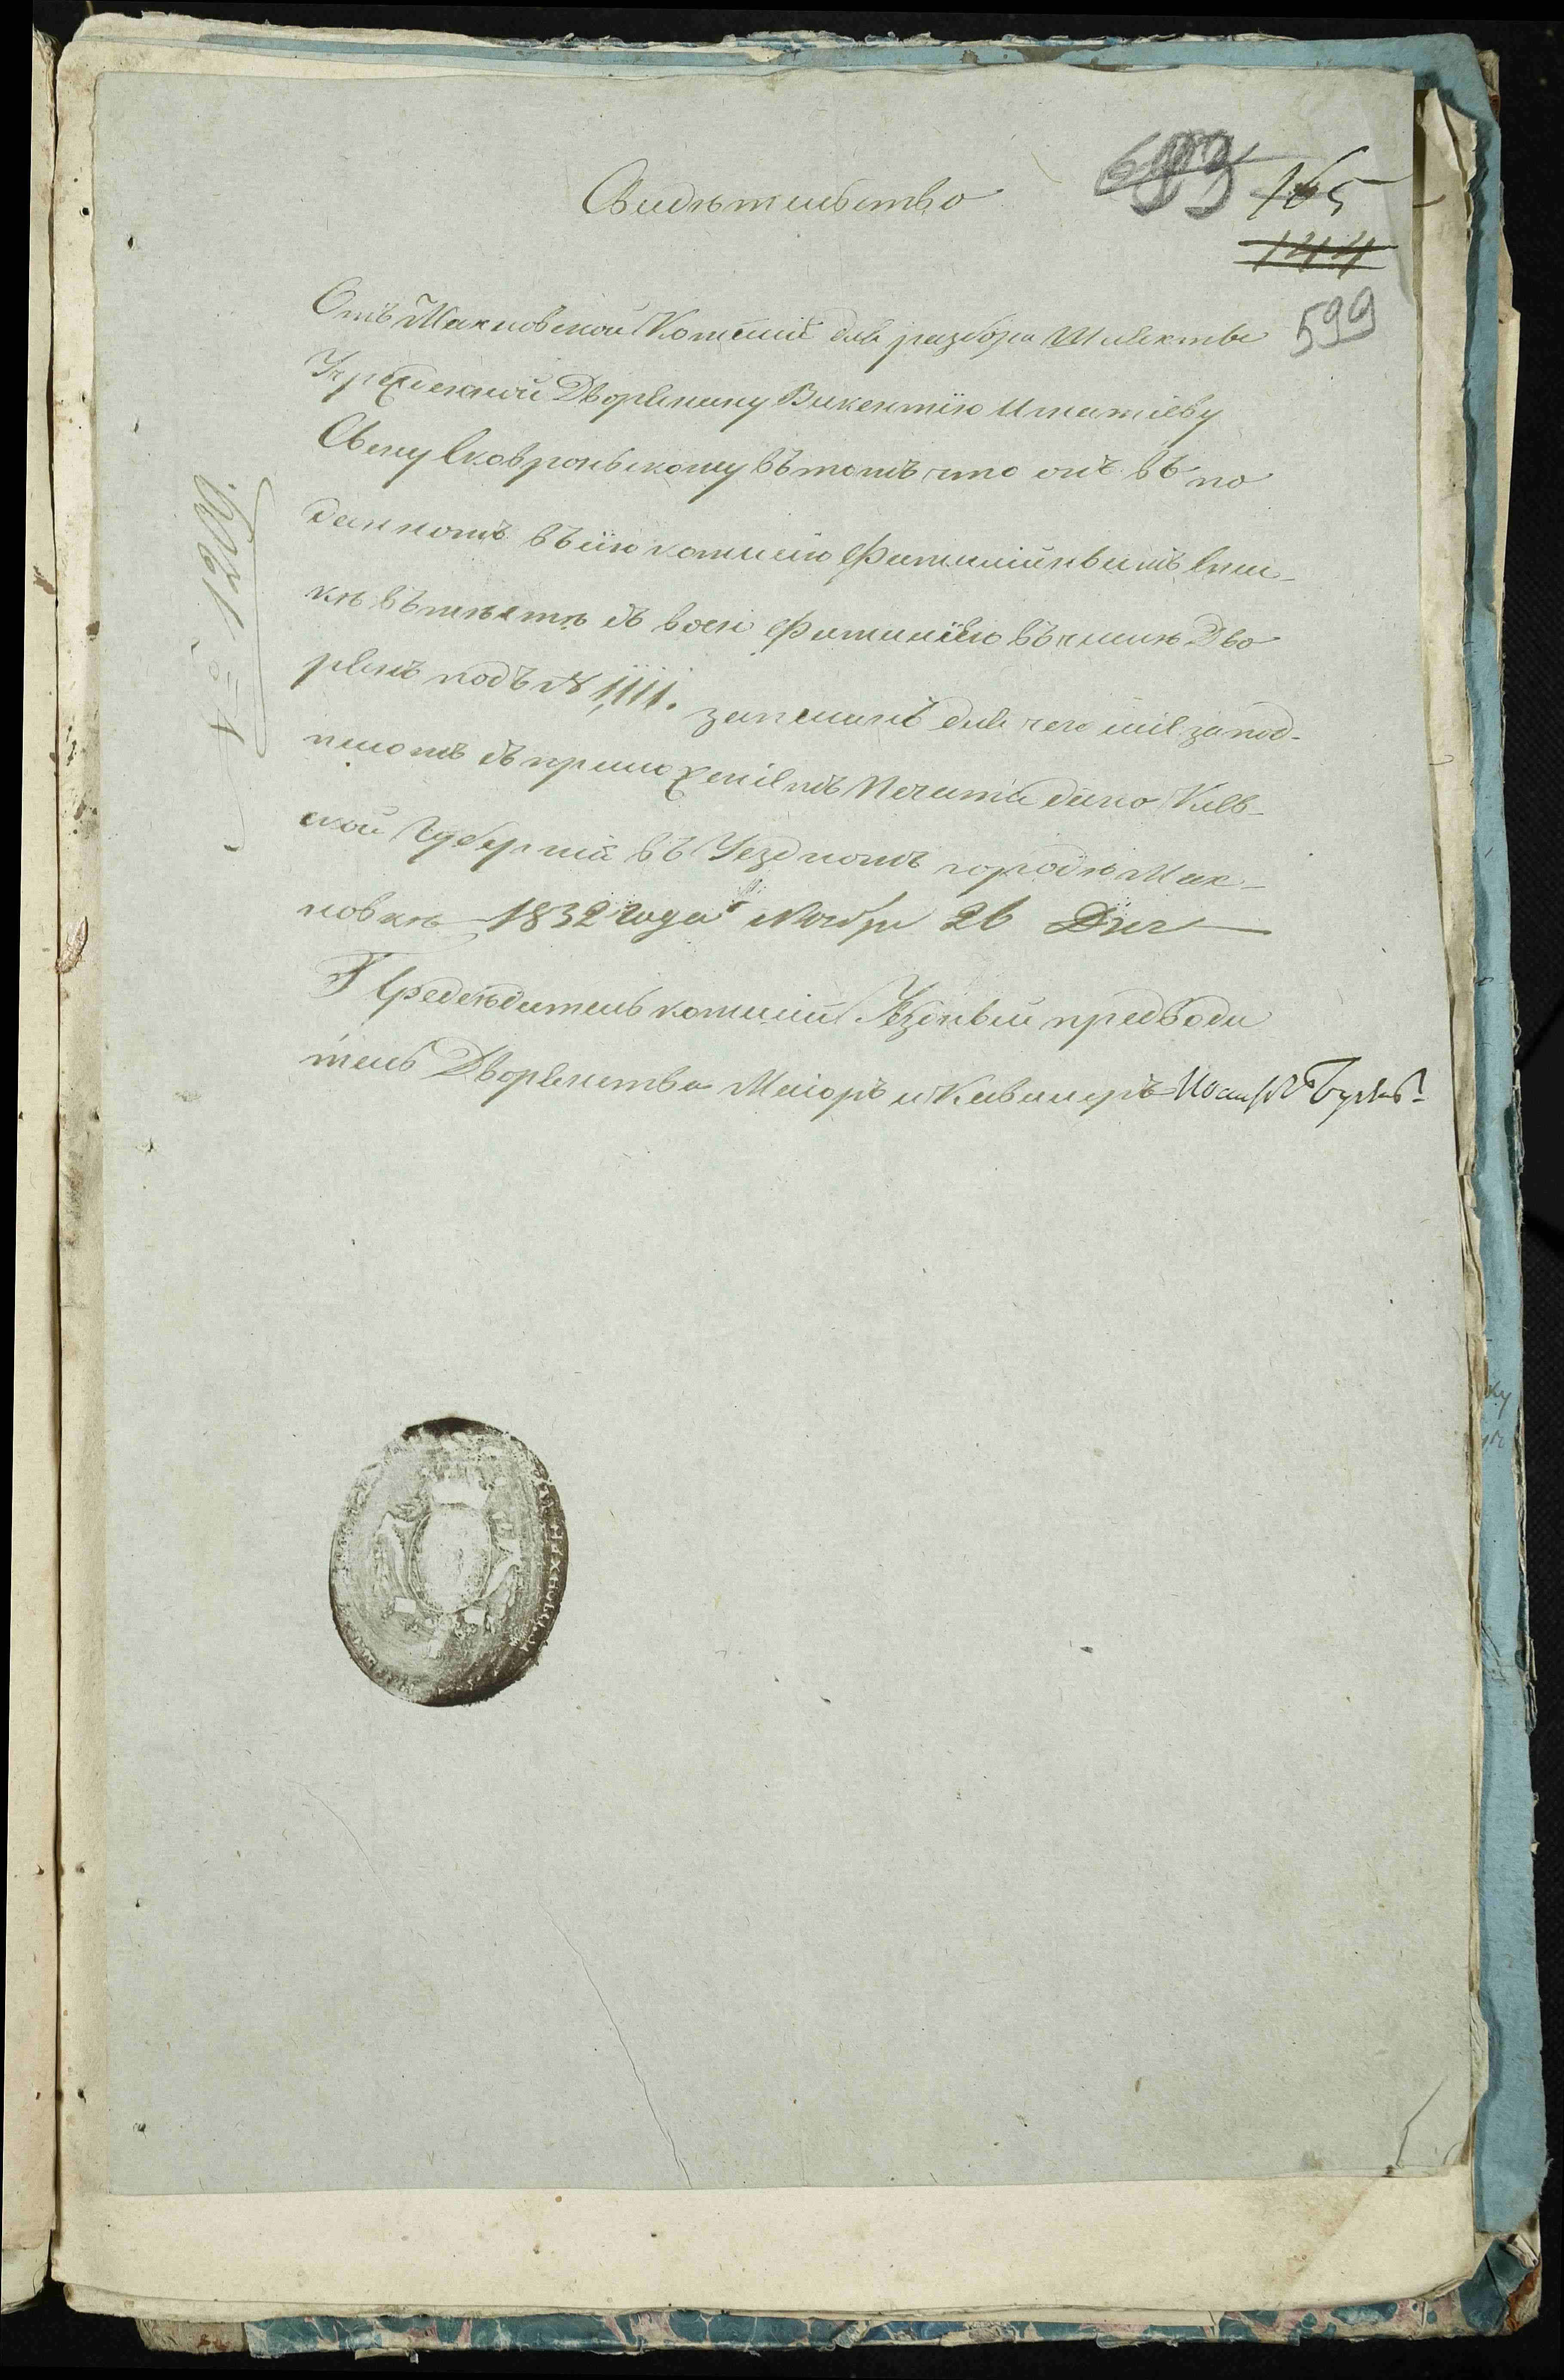 Свидѣтельство
693 165
144
599
Отъ Махновской Комісіи для разбора Шляхты
Учрежденной Дворянину Викентію Игнатіеву
Сыну Сковронскому въ томъ что онъ въ по
данномъ въ сію комисію Фамилійнымъ Спи-
кѣ въмѣстѣ съ своею Фамиліею въ книгѣ Дво
рянъ подъ № 1111. записанъ для чего сіе за под-
писомъ съ приложеніемъ Печати дано Кіев-
ской Губерніи въ Уездномъ городѣ Мах-
новкѣ 1832 года Ноября 26 Дня
Предсѣдатель комисіи Уездный предводи
тель Дворянства Маіоръ и Кавалеръ Иосифъ
№ 1209.